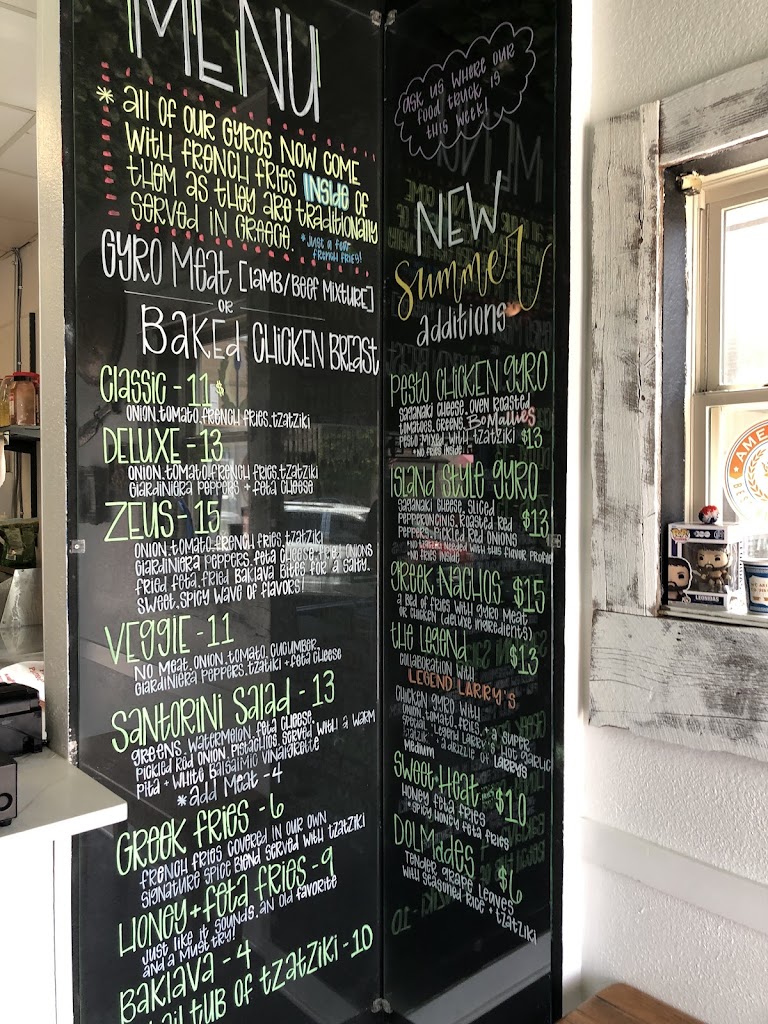 MENU
* all of our gyros now come
with french fries inside of
them as they are traditionally
served in Greece. * just a few
french fries!
Gyro Meat [lamb/beef mixture]
or
Baked Chicken Breast
Classic - 11
onion, tomato, french fries, tzatziki
Deluxe - 13
onion, tomato, french fries, tzatziki
giardiniera peppers + feta cheese
Zeus - 15
onion, tomato, french fries, tzatziki
giardiniera peppers, feta cheese, fried onions
fried feta, fried baklava bites for a salty,
sweet, spicy wave of flavors!
Veggie - 11
no meat, onion, tomato, cucumber,
giardiniera peppers, tzatiki + feta cheese
Santorini Salad - 13
greens, watermelon, feta cheese,
pickled red onion, pistachios, served with a warm
pita + white balsalmic vinaigrotte
*add meat - 4
Greek Fries - 6
french fries covered in our own
signature spice blend served with tzatziki
Honey + Feta Fries - 9
just like it sounds. an old favorite
and a must try!
Baklava - 4
tub of tzatziki - 10
ask us where our
food truck is
this week!
NEW
Summer
additions
Pesto Chicken Gyro
saganaki cheese, oven roasted
tomatoes, greens, BoMallies
pesto mixed with tzatziki $13
*no fries inside
Island Style Gyro
saganaki cheese, sliced
pepperoncinis, roasted red
peppers, pickled red onions $13
needed with this flavor profile
*no fries inside
Greek Nachos $15
a bed of fries with gyro meat
or chicken (deluxe ingredients)
The Legend $13
collaboration with
LEGEND LARRY'S
chicken gyro with
onion, tomato, fries, + a super
special "Legend Larry's hot garlic
tzatzik" + a drizzle of Larry's
medium
Sweet Heat $10
honey feta fries
*spicy honey feta fries
Dolmades $6
tender grape leaves
with seasoned rice + tzatziki
AME
POP!
300
LEONIDAS